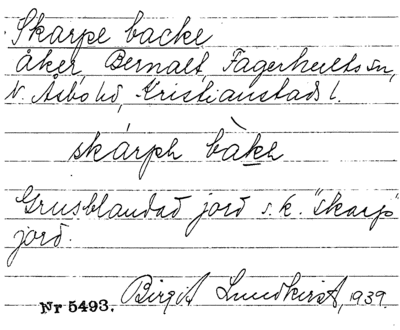 Skarpe backe
åker, Bernalt, Fagerhults sn,
N. Åsbo hd, Kristianstads l.
skárpə bàkə
Grusblandad jord s.k. "skarp"
jord.
Birgit Lundkvist, 1939.
Nr 5493.